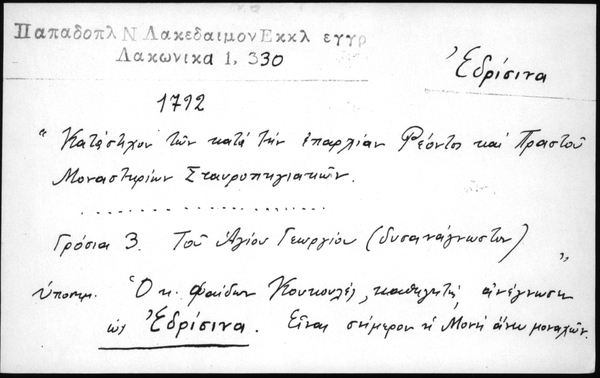 Παπαδοπλ Ν Λακεδαιμον Εκκλ εγγρ
Λακωνικα 1, 330
Ἑδρίσινα
1792
" Κατάστιχον τῶν κατὰ τὴν ἐπαρχίαν Ρέοντος καὶ Πραστοῦ
Μοναστηρίων Σταυροπηγιακῶν.
. . . . . . . . . . . . . . . .
Γρόσια 3. Τοῦ Ἁγίου Γεωργίου (δυσανάγνωστον) "
ὑποσημ. Ὁ κ. Φαίδων Κουκουλές, καθηγητής, ἀνέγνωσεν
ὡς Ἑδρίσινα. Εἶναι σήμερον ἡ Μονὴ ἄνευ μοναχῶν.